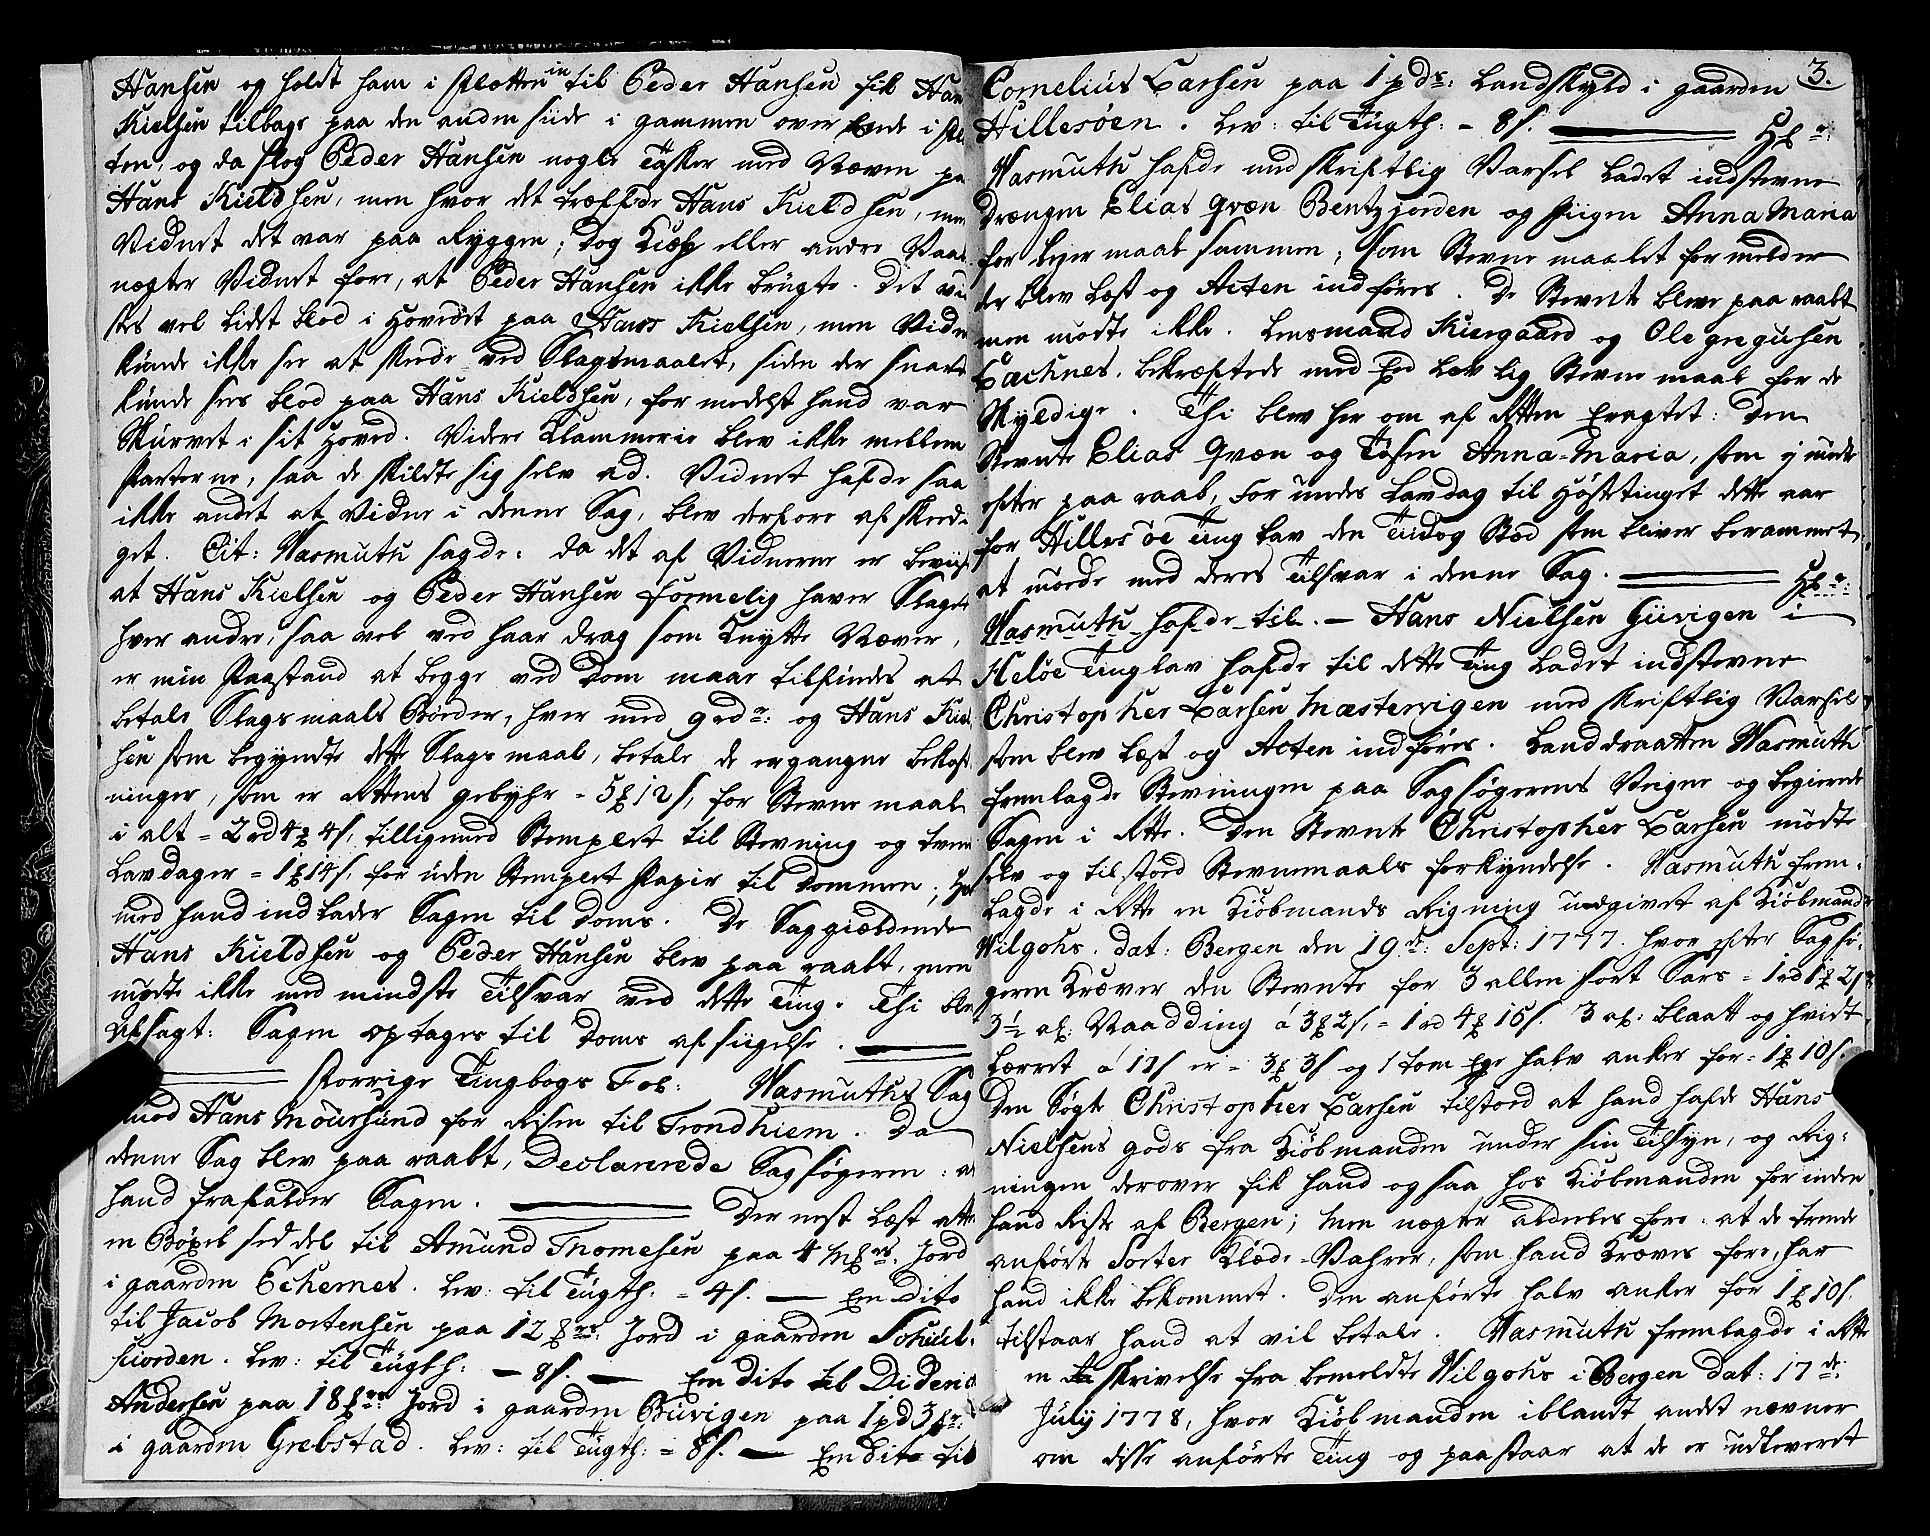 Hansen og holdt ham i Skotten in til Peder Hansen fik Han
Kielsen tilbage paa den anden siide i gammen over Ende i
ten, og da slog Peder Hansen nogle Tasker med Næven pa
Hans Kieldsen, men hvor det træffede Hans Kieldsen, men
Vidnet det var paa Ryggen; dog Kiæp eller andre Vaab
negter Vidnet fore, at Peder Hansen ikke brugte. Det vi
stes vel lidet blod i Hovedet paa Hans Kielsen, men Vidn
kunde ikke see at skeede ved Slagsmaalet, siden der snart
kunde sees blod paa Hans Kieldsen, formedelst hand var
Skurvet i sit Hoved. Videre Klammerie blev ikke mellem
Parterne, saa de skildte sig selv ad. Vidnet hafde saa
ikke andet at Vidne i denne Sag, blev derfore afskeedi-
get. Cit: Wasmuth sagde: da det af Vidnerne er beviist
at Hans Kielsen og Peder Hansen formelig haver Slaget
hver andre, saa vel ved haar drag som Knytte Næver,
er min Paastand at begge ved Dom maae tilfindes at
betale Slagsmaals Bøder, hver med 9 rdr: og Hans Kiel
sen som begyndte dette Slagsmaal, betale de ergangne bekost
ninger, som er Rettens gebyhr = 5 ℔ 12 s, for Stevnemaal
i alt = 2 rd 4 ℔ 4 s, tilligemed Stemplet til Stevning og tvende
Lavdager = 1 ℔ 14 s, foruden Stemplet Papir til Dommen; Her
med hand indlader Sagen til Doms. De Saggiældende
Hans Kieldsen og Peder Hansen blev paaraabt, men
mødte ikke med mindste Tilsvar ved dette Ting. Thi blev
afsagt: Sagen optages til Doms afsiigelse.
forrige Tingbogs Fol: Wasmuths Sag
mod Hans Moursund for Reisen til Trondhiem. Da
denne Sag blev paaraabt, Declarerede Sagsøgeren: at
hand frafalder Sagen. Der nest Læst atter
en Bøxelseddel til Amund Thomesen paa 4 Mrks: Jord
i gaarden Echernes. Lev: til Tugth: = 4 s. — Een dito
til Jacob Mortensen paa 12 Jord i gaarden
fiorden. Lev: til Tugth: — 8 s. — Een dito til Diderich
Andersen paa 18 Jord i gaarden Buvigen paa 1 pd 3
i gaarden Grebstad. Lev: til Tugth: = 8 s. — Een dito til
3.
Cornelius Larsen paa 1 pds: Landskyld i gaarden
Hillesøen. Lev: til Tugth: = 8 s. Hr:
Wasmuth hafde med skriftlig Varsel Ladet indstevne
Drængen Elias Qvæn Bentzjorden og Piigen Anna Maria
for Leyermaal sammen, som Stevnemaalet formelder
der blev Læst og Acten indføres. De Stevnte bleve paaraabt
men mødte ikke. Lensmand Kiergaard og Ole gregusen
Lachnes, bekræftede med Eed Lovlig Stevnemaal for de
Skyldige. Thi blev her om af Retten Eragtet: Den
Stevnte Elias Qvæn og Tøsen Anna-Maria, som ej møde
efter paaraab, Forundes Lavdag til Høstetinget dette aar
for Hillesøe Tinglav den Tid og Stæd som bliver berammet
at møde med deres Tilsvar i denne Sag. Hr:
Wasmuth hafde til. — Hans Nielsen Giivigen i
Helöe Tinglav hafde til dette Ting Ladet indstevne
Christopher Larsen Mæstervigen med skriftlig Varsel
som blev Læst og Acten indføres. Landdraatten Wasmuth
fremlagde Stevningen paa Sagsøgerens Veigne og begierede
Sagen i Rette. Den Stevnte Christopher Larsen mødte
selv og tilstoed Stevnemaals forkyndelse. Wasmuth frem-
lagde i Rette en Kiøbmands Rigning udgivet af Kiøbmand
Wilgohs. dat: Bergen den 19de: Sept: 1777. hvor efter Sagsø-
geren Kræver den Stevnte for 3 allen sort Sars = 1 rd 1 ℔ 2 s
3½ al: Vaadding á 3 ℔ 2 s, = 1 rd 4 ℔ 15 s. 3 al: blaatt og hvidt
Lærret á 17 s er = 3 ℔ 3 s og 1 tom Ege halv anker for = 1 ℔ 10 s.
Den Søgte Christopher Larsen tilstoed at hand hafde Hans
Nielsens gods fra Kiøbmanden under sin Tilsyn, og Rig-
ningen derover fik hand ogsaa hos Kiøbmanden forinden
hand Reiste af Bergen; Men negter aldeeles fore: at de trende
anførte Sorter Klæde-Vahrer, som hand Kræves fore, har
hand ikke bekommet. Den anførte halv anker for 1 ℔ 10 s.
tilstaar hand at vil betale. Wasmuth fremlagde i Rette
en Skrivelse fra bemeldte Wilgohs i Bergen dat: 17de:
July 1778, hvor Kiøbmanden iblandt andet nævner
om disse anførte Ting og paastaar at de er udleveret